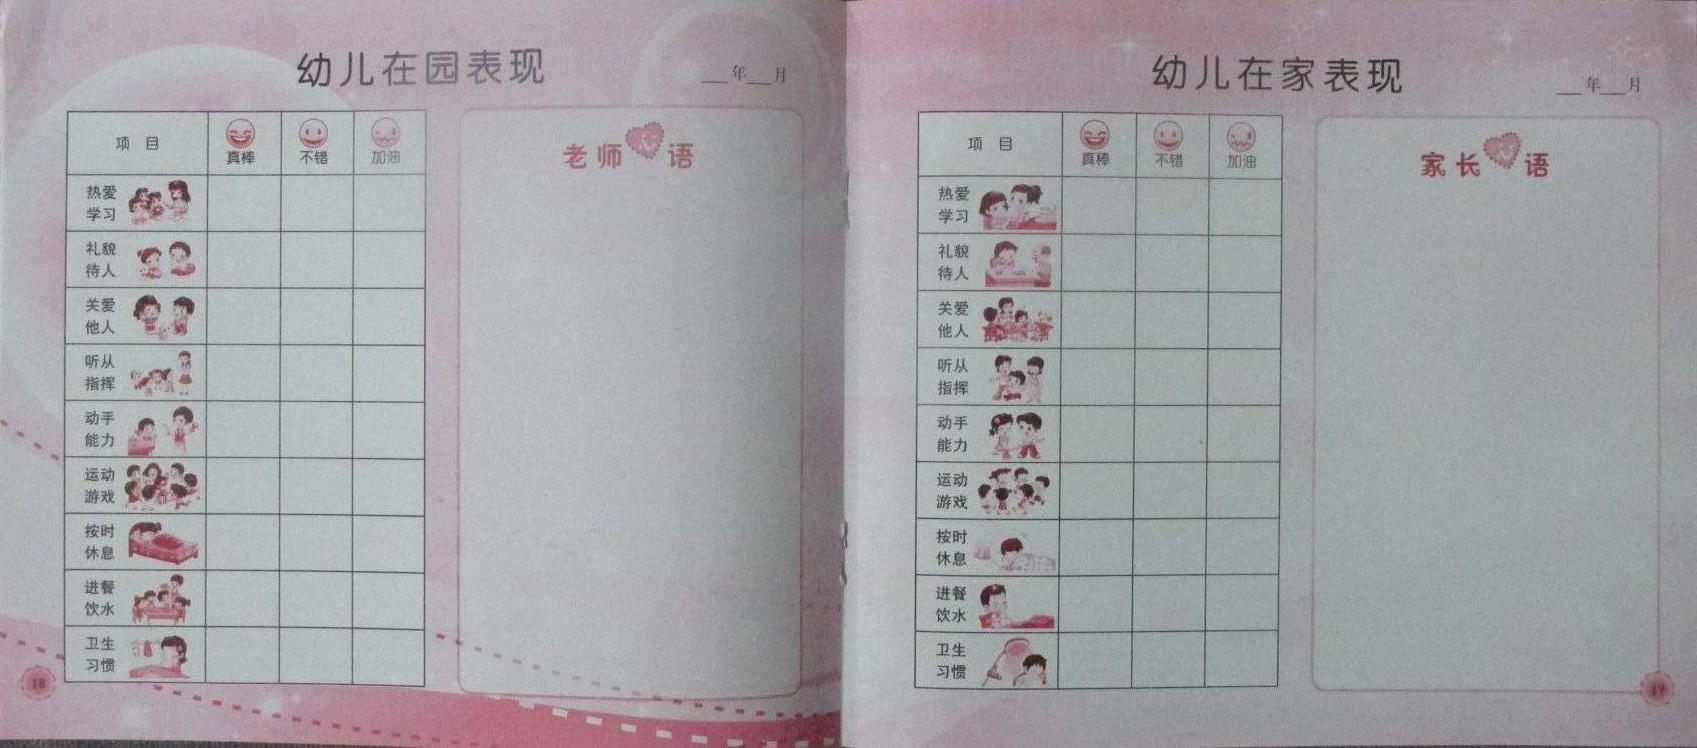 幼儿在园表现
___年___月
项 目 真棒 不错 加油
热爱
学习
礼貌
待人
关爱
他人
听从
指挥
动手
能力
运动
游戏
按时
休息
进餐
饮水
卫生
习惯
老师 语
18
幼儿在家表现
___年___月
项 目 真棒 不错 加油
热爱
学习
礼貌
待人
关爱
他人
听从
指挥
动手
能力
运动
游戏
按时
休息
进餐
饮水
卫生
习惯
家长 语
19